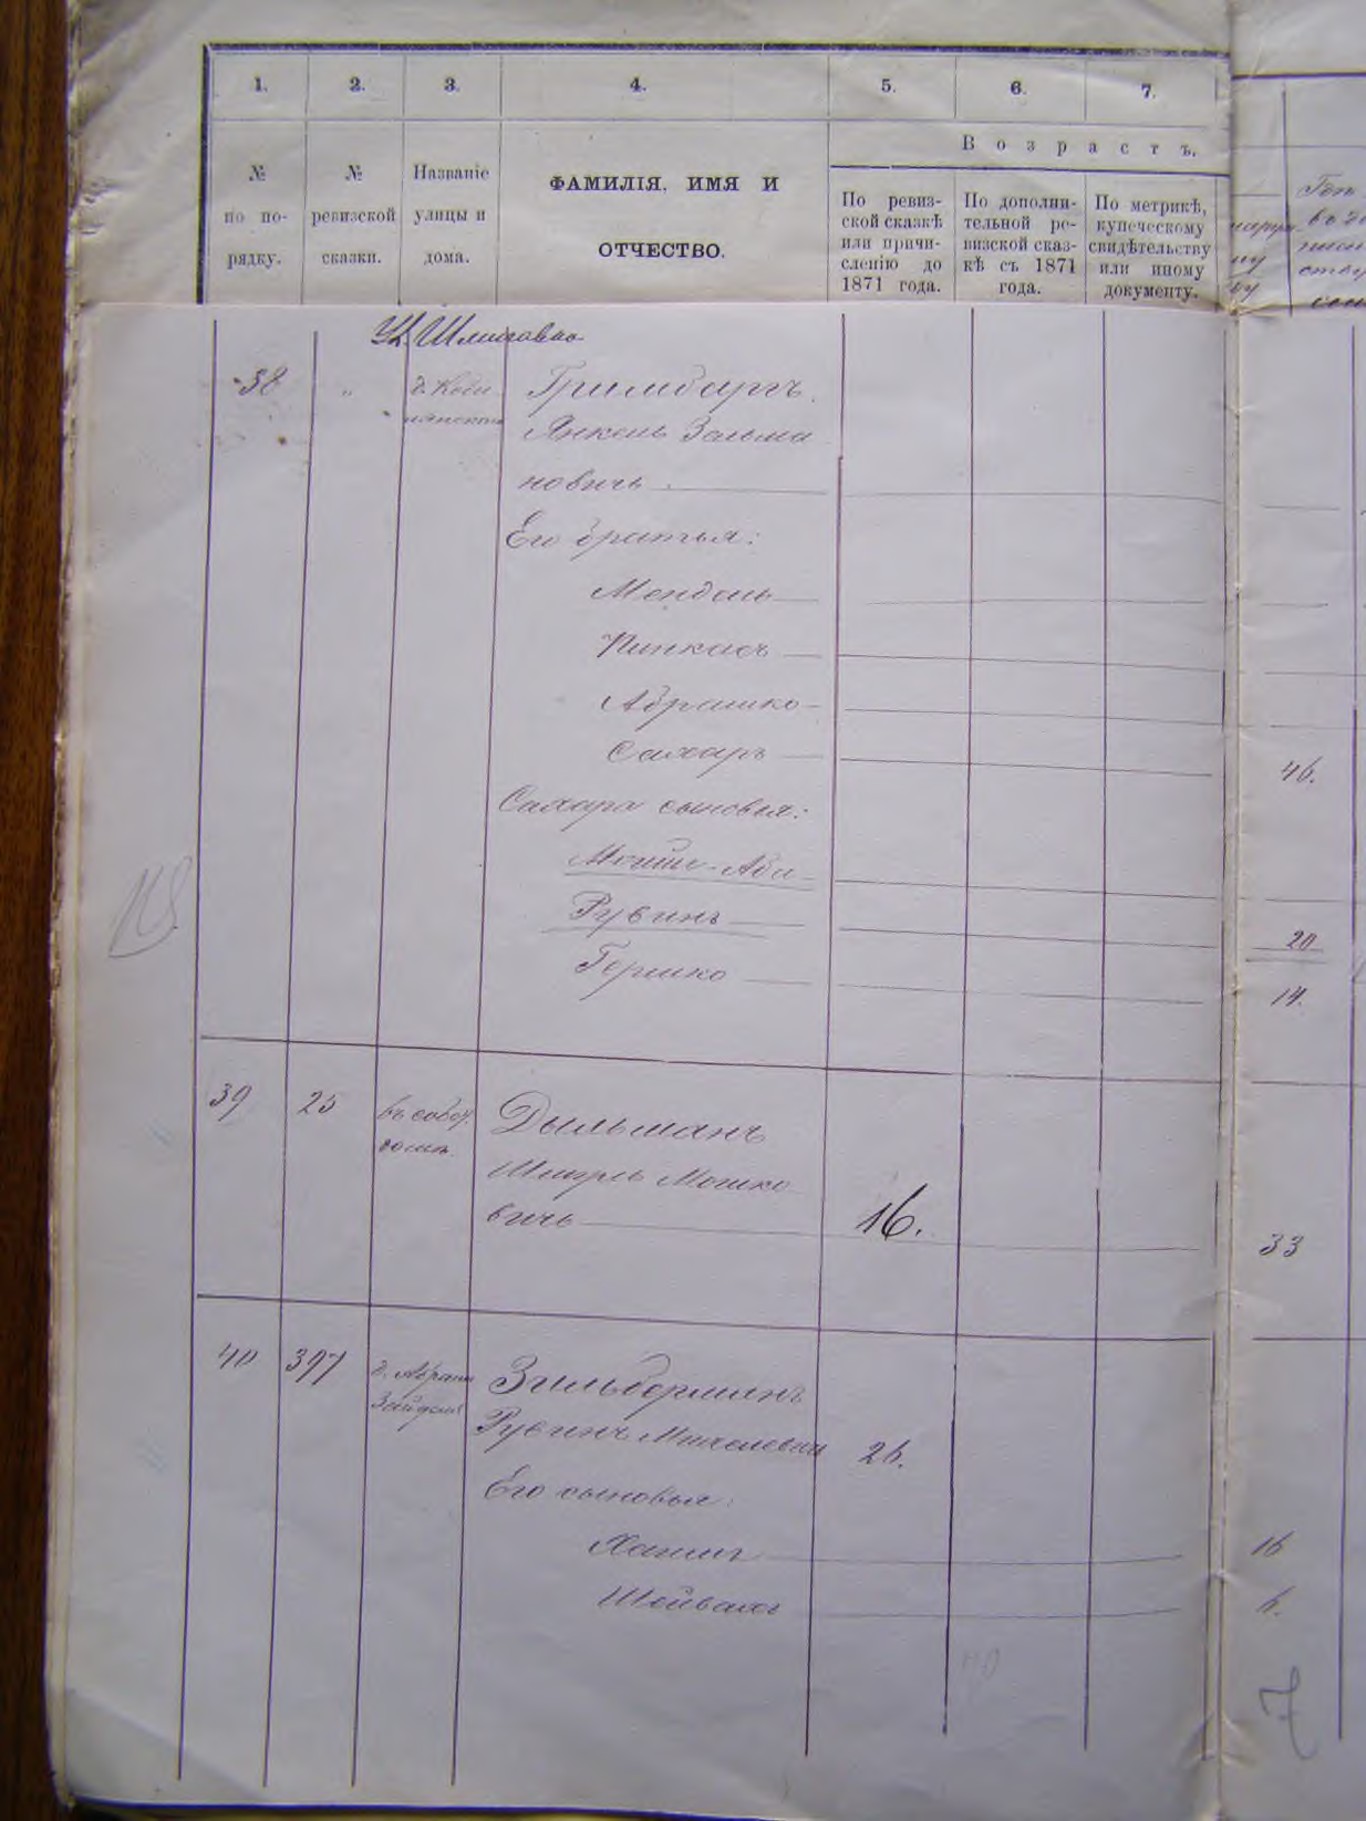 1. 2. 3. 4. 5. 6. 7.
№ по по-рядку.
№ ревизской сказки.
Названіе улицы и дома.
ФАМИЛІЯ, ИМЯ И
ОТЧЕСТВО.
Возрастъ.
По ревиз-
ской сказкѣ
или причи-
сленію до
1871 года.
По дополни-
тельной ре-
визской сказ-
кѣ съ 1871
года.
По метрикѣ,
купеческому
свидѣтельству
или иному
документу.
38 " Гримбаргъ
Янкель Зельма
новичь
Его братья:
Мендель
Пинкасъ
Абрашко
Сахаръ 46.
Сахара сыновья:
Мошко-Аба
Рувинъ 20
Гершко 14.
39 25 въ собст. Дыльманъ
домѣ Шмуль Мошко
вичь 16. 33
40 397 д. Абрама Зильберманъ
Зейделя Рувинъ Михелевичь 26.
Его сыновья:
Хаимъ 16
Шейвахъ 6.
7